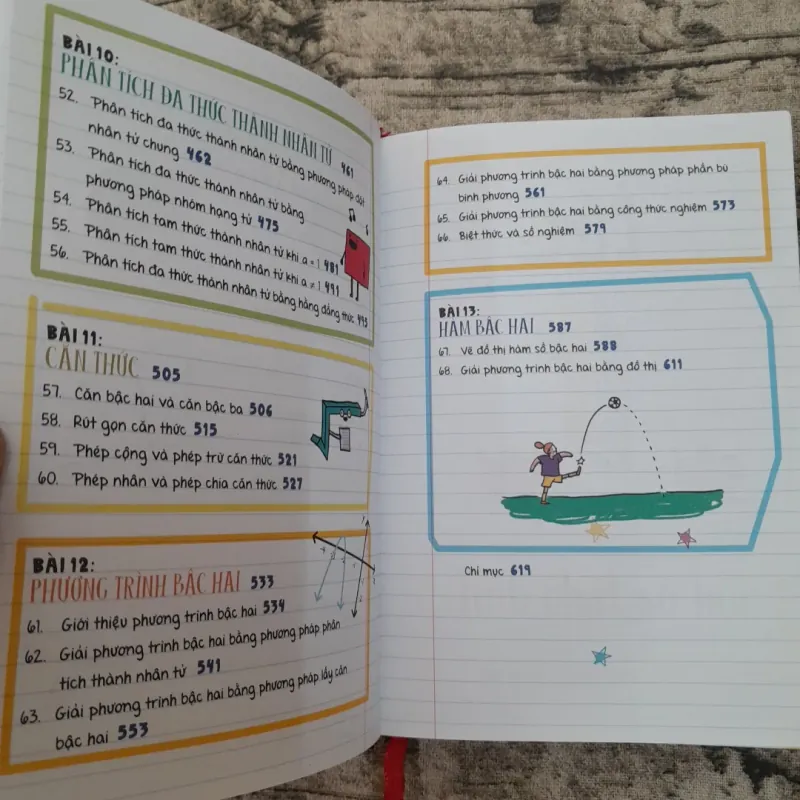 BÀI 10:
PHÂN TÍCH ĐA THỨC THÀNH NHÂN TỬ 461
52. Phân tích đa thức thành nhân tử bằng phương pháp đặt
nhân tử chung 462
53. Phân tích đa thức thành nhân tử bằng
phương pháp nhóm hạng tử 475
54. Phân tích tam thức thành nhân tử khi a = 1 481
55. Phân tích tam thức thành nhân tử khi a ≠ 1 491
56. Phân tích đa thức thành nhân tử bằng hằng đẳng thức 495
BÀI 11:
CĂN THỨC 505
57. Căn bậc hai và căn bậc ba 506
58. Rút gọn căn thức 515
59. Phép cộng và phép trừ căn thức 521
60. Phép nhân và phép chia căn thức 527
BÀI 12:
PHƯƠNG TRÌNH BẬC HAI 533
61. Giới thiệu phương trình bậc hai 534
62. Giải phương trình bậc hai bằng phương pháp phân
tích thành nhân tử 541
63. Giải phương trình bậc hai bằng phương pháp lấy căn
bậc hai 553
64. Giải phương trình bậc hai bằng phương pháp phần bù
bình phương 561
65. Giải phương trình bậc hai bằng công thức nghiệm 573
66. Biệt thức và số nghiệm 579
BÀI 13:
HÀM BẬC HAI 587
67. Vẽ đồ thị hàm số bậc hai 588
68. Giải phương trình bậc hai bằng đồ thị 611
Chỉ mục 619